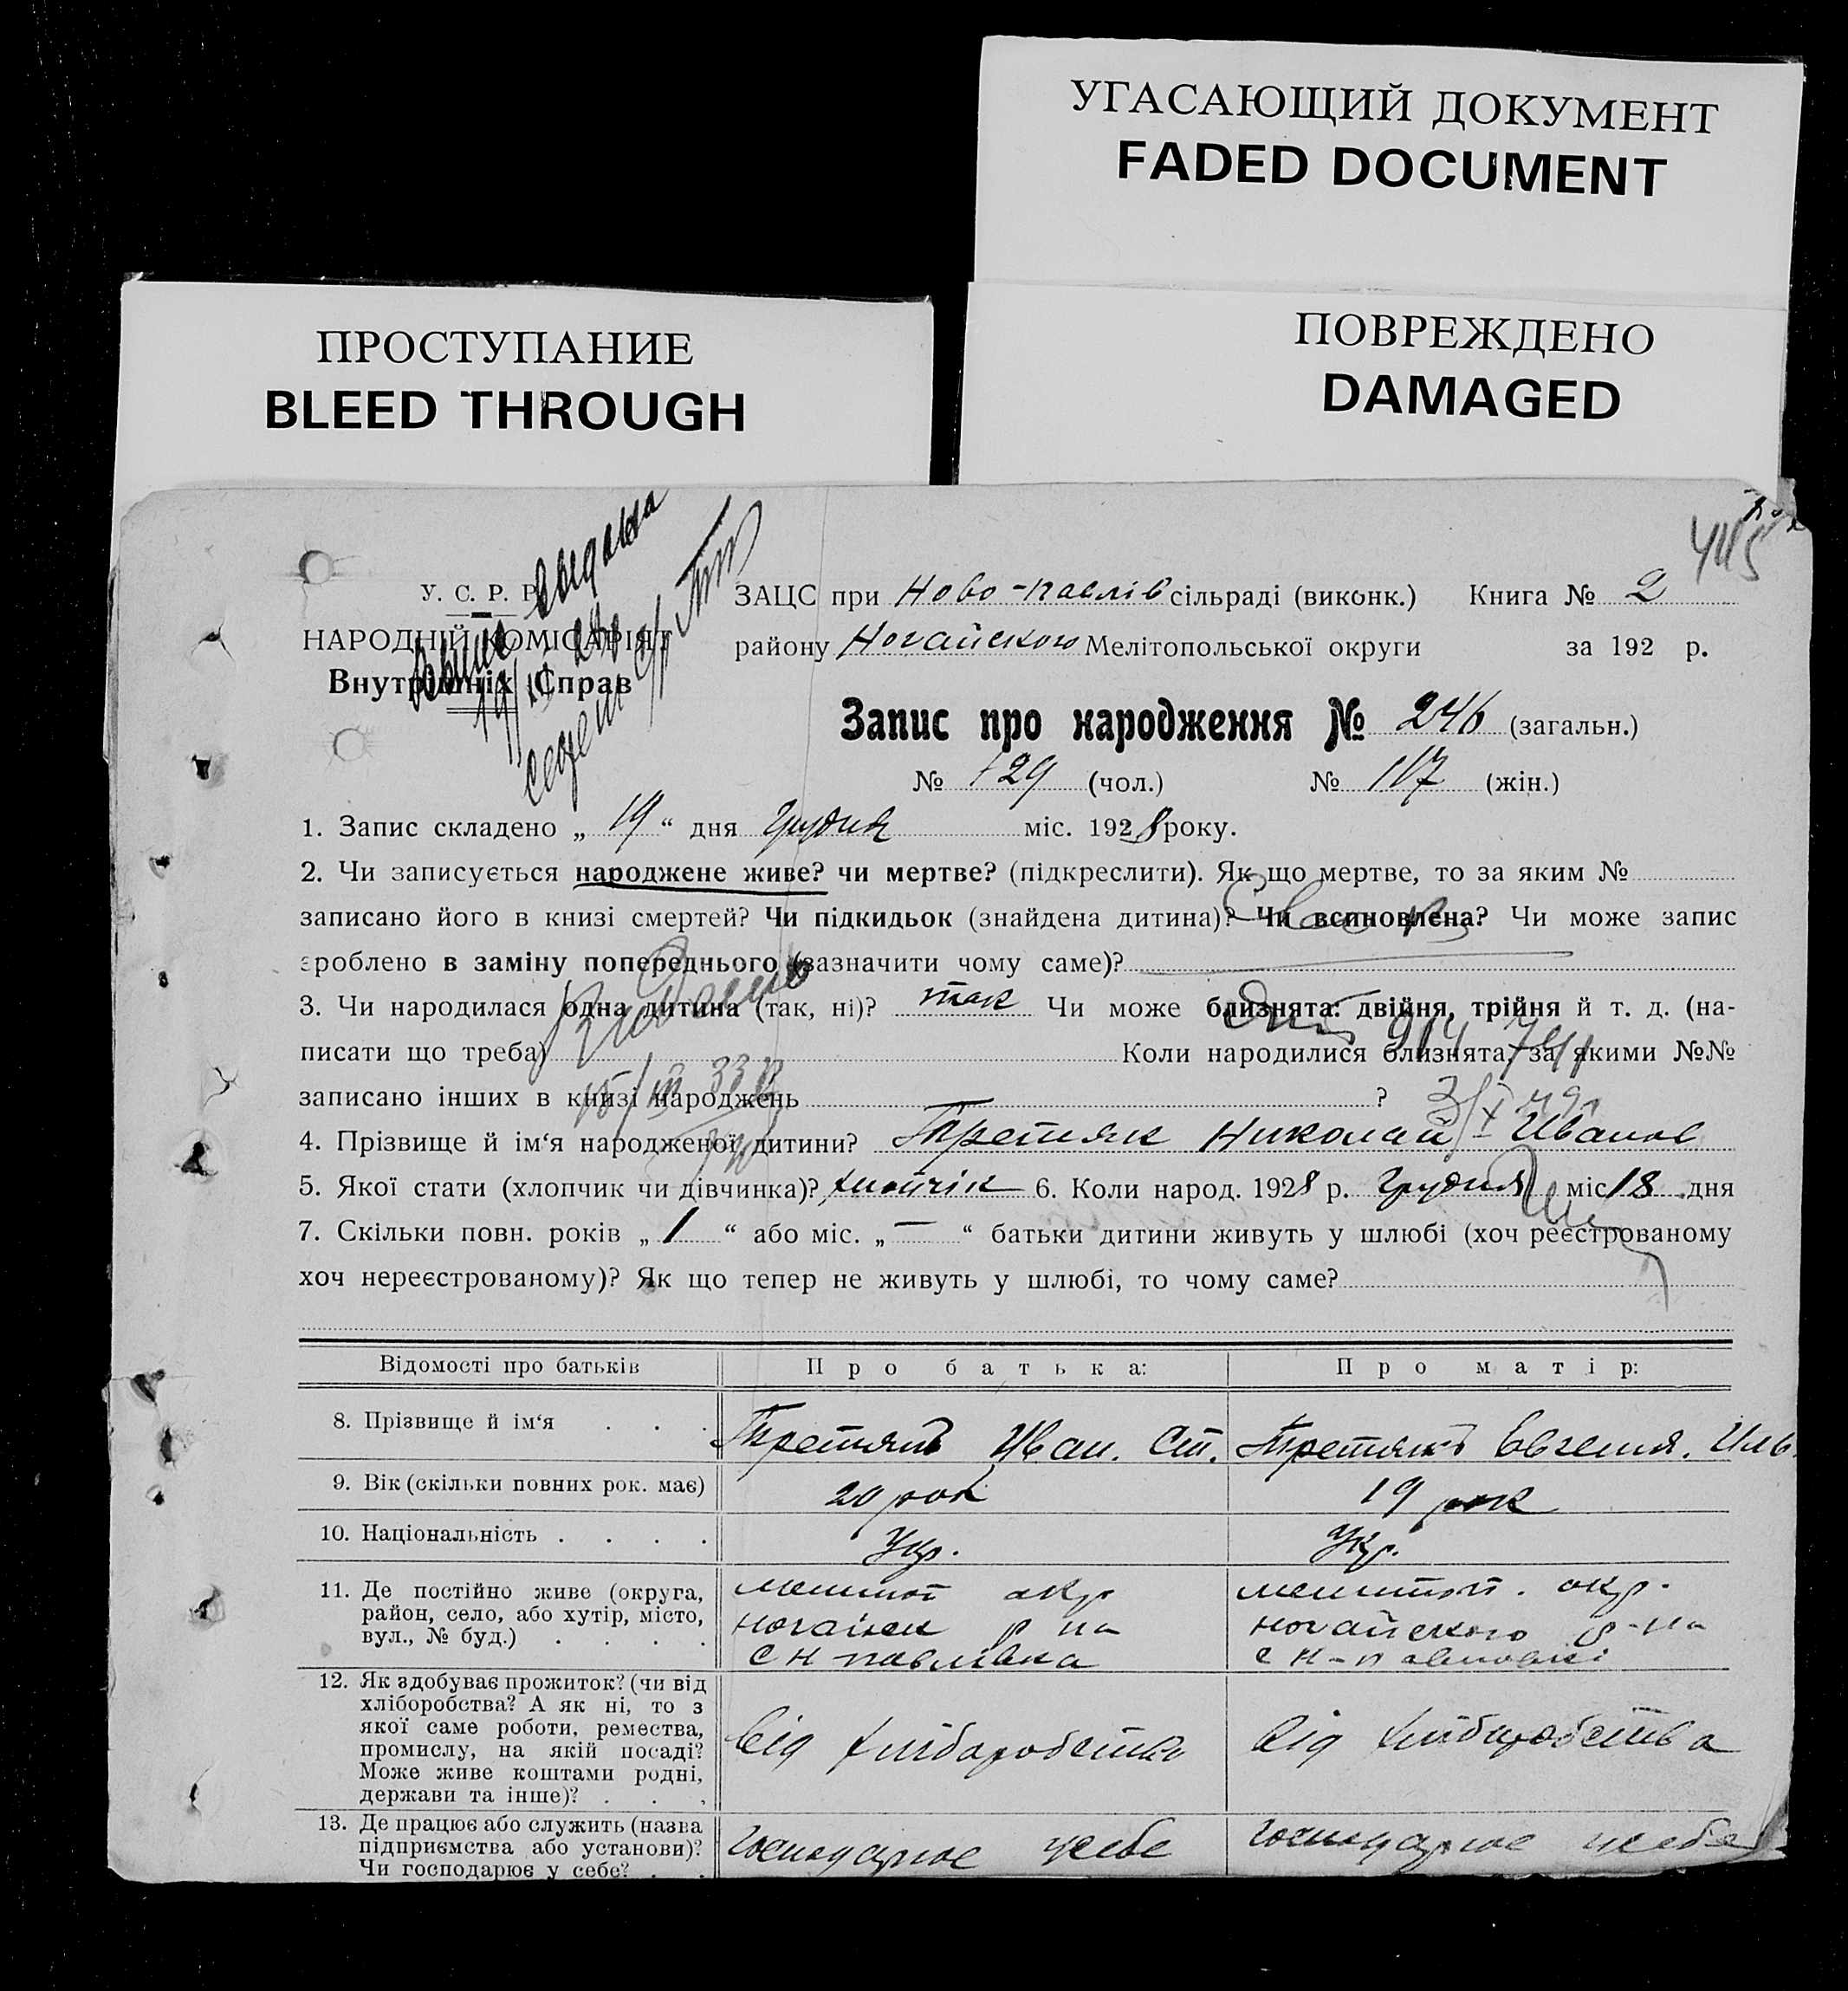 УГАСАЮЩИЙ ДОКУМЕНТ
FADED DOCUMENT
ПРОСТУПАНИЕ
BLEED THROUGH
ПОВРЕЖДЕНО
DAMAGED
445
У. С. Р. Р.
НАРОДНІЙ КОМІСАРІЯТ
Внутрішніх Справ
ЗАЦС при Ново-павлів сільраді (виконк.) Книга № 2
району Ногайского Мелітопольської округи за 192 р.
Запис про народження № 246 (загальн.)
№ 129 (чол.) № 117 (жін.)
1. Запис складено „ 19 “ дня грудня міс. 1928 року.
2. Чи записується народжене живе? чи мертве? (підкреслити). Як що мертве, то за яким №
записано його в книзі смертей? Чи підкидьок (знайдена дитина)? Чи всиновлена? Чи може запис
зроблено в заміну попереднього (зазначити чому саме)?
3. Чи народилася одна дитина (так, ні)? так Чи може близнята: двійня, трійня й т. д. (на-
писати що треба) Коли народилися близнята, за якими №№
записано інших в книзі народжень ?
4. Прізвище й ім‘я народженої дитини? Третяк Николай Иванов
5. Якої стати (хлопчик чи дівчинка)? хлопчік 6. Коли народ. 1928 р. грудня міс 18 дня
7. Скільки повн. років „ 1 “ або міс. „ — “ батьки дитини живуть у шлюбі (хоч реєстрованому
хоч нереєстрованому)? Як що тепер не живуть у шлюбі, то чому саме?
Відомості про батьків Про батька: Про матір:
8. Прізвище й ім‘я . . . Третякъ Иван. Ст. Третякъ Евгения. Иль.
9. Вік (скільки повних рок. має) 20 рок 19 рок
10. Національність . . . . Укр. Укр.
11. Де постійно живе (округа, мелитоп окр мелитоп. окр.
район, село, або хутір, місто, ногайск р на ногайского р-на
вул., № буд.) . . . . с Н павлівка с Н-павловкі
12. Як здобуває прожиток? (чи від
хліборобства? А як ні, то з
якої саме роботи, ремества,
промислу, на якій посаді? від хліборобства від хліборобства
Може живе коштами родні,
держави та інше)? . . .
13. Де працює або служить (назва
підприємства або установи)? господарює усебе господарює усебе
Чи господарює у себе? . .